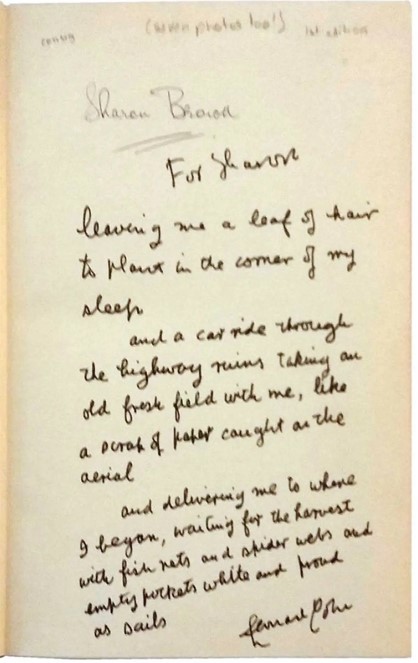 consig
(seven photos too!)
1st edition
Sharon Brown
For Sharon
leaving me a leaf of hair
to plant in the corner of my
sleep
and a car ride through
the highway ruins taking an
old fresh field with me, like
a scrap of paper caught on the
aerial
and delivering me to where
I began, waiting for the harvest
with fish nets and spider webs and
empty pockets white and proud
as sails
Leonard Cohen